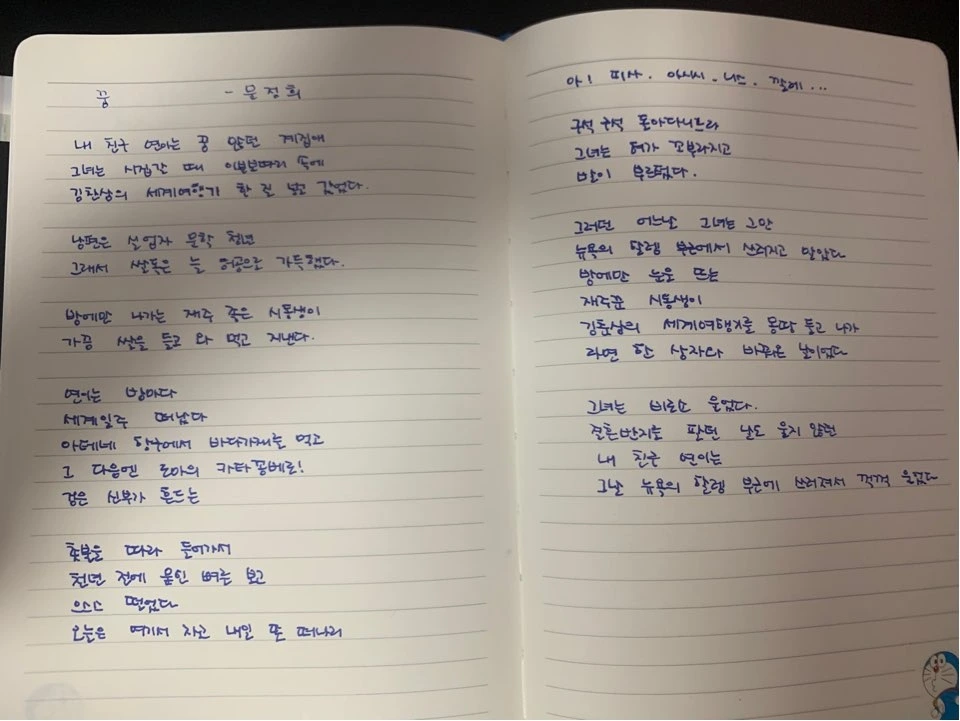 꿈 - 문정희
내 친구 연이는 꿈 많던 계집애
그녀는 시집갈 때 이불보따리 속에
김찬삼의 세계여행기 한 질 넣고 갔었다.
남편은 실업자 문학 청년
그래서 쌀독은 늘 허공으로 가득했다.
밤에만 나가는 재주 좋은 시동생이
가끔 쌀을 들고 와 먹고 지낸다.
연이는 밤마다
세계일주 떠났다
아테네 항구에서 바다가재를 먹고
그 다음엔 로마의 카타콤베로!
검은 신부가 흔드는
촛불을 따라 들어가서
천년 전에 묻힌 뼈를 보고
으스스 떨었다
오늘은 여기서 자고 내일 또 떠나리
아! 피사. 아시시. 니스. 깔레...
구석 구석 돌아다니느라
그녀는 혀가 꼬부라지고
발이 부르텄다.
그러던 어느날 그녀는 그만
뉴욕의 할렘 부근에서 쓰러지고 말았다
밤에만 눈을 뜨는
재주꾼 시동생이
김찬삼의 세계여행기를 몽땅 들고 나가
라면 한 상자와 바꿔온 날이었다
그녀는 비로소 울었다.
결혼반지를 팔던 날도 울지 않던
내 친구 연이는
그날 뉴욕의 할렘 부근에 쓰러져서 꺽꺽 울었다